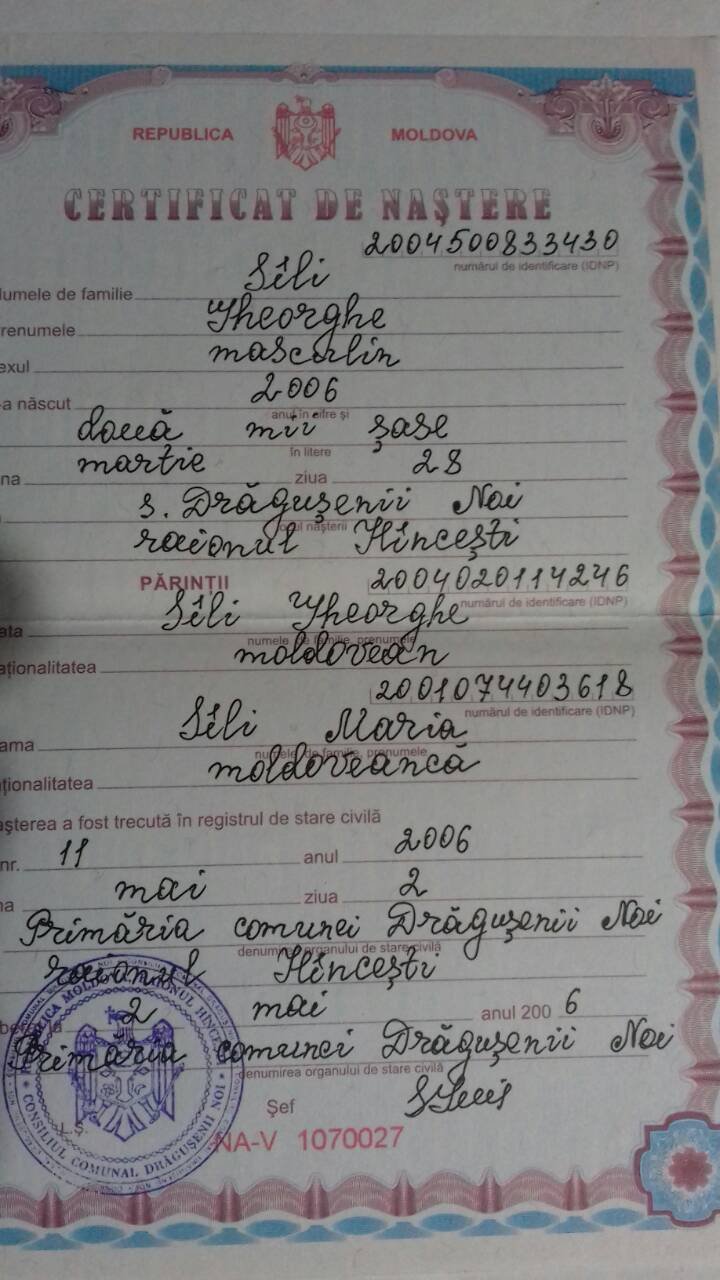 REPUBLICA MOLDOVA
CERTIFICAT DE NAȘTERE
2004500833430
numărul de identificare (IDNP)
umele de familie Sîli
renumele Gheorghe
exul masculin
-a născut 2006
anul în cifre și
două mii șase
în litere
na martie ziua 28
s. Drăgușenii Noi
locul nașterii
raionul Hîncești
PĂRINȚII 2004020114246
numărul de identificare (IDNP)
ata Sîli Gheorghe
numele de familie, prenumele
aționalitatea moldovean
2001074403618
numărul de identificare (IDNP)
ama Sîli Maria
numele de familie, prenumele
ționalitatea moldoveancă
așterea a fost trecută în registrul de stare civilă
nr. 11 anul 2006
na mai ziua 2
Primăria comunei Drăgușenii Noi
denumirea organului de stare civilă
raionul Hîncești
2 mai anul 200 6
Primăria comunei Drăgușenii Noi
denumirea organului de stare civilă
Șef
L.Ș.
NA-V 1070027
CONSILIUL COMUNAL DRĂGUȘENII NOI